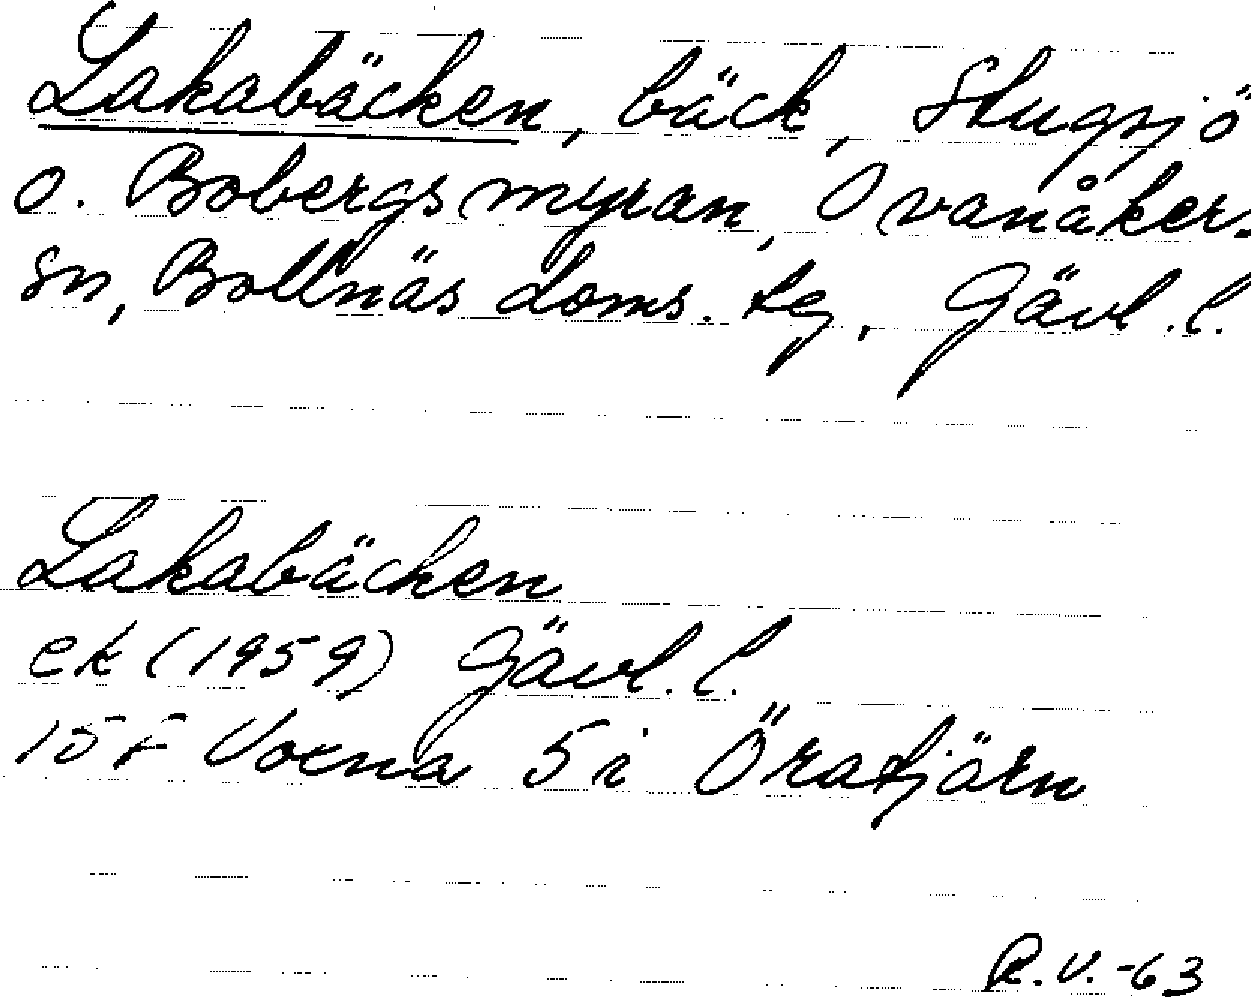 Lakabäcken, bäck, Stugsjö
o. Bobergsmyran, Ovanåkers
sn, Bollnäs doms. tg, Gävl. l.
Lakabäcken
ek (1959) Gävl. l.
15 F Voxna 5 i Öratjärn
R.V.-63